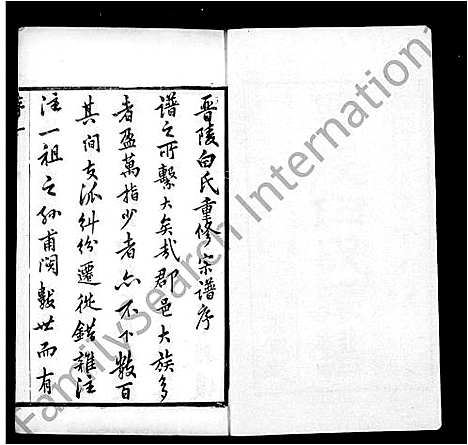 晋陵白氏重修宗谱序
谱之所繫大矣哉郡邑大族多
者盈萬指少者亦不下數百
其间支派纠纷遷徙錯雜往
往一祖之孙甫阅數世而有
序一
FamilySearch International